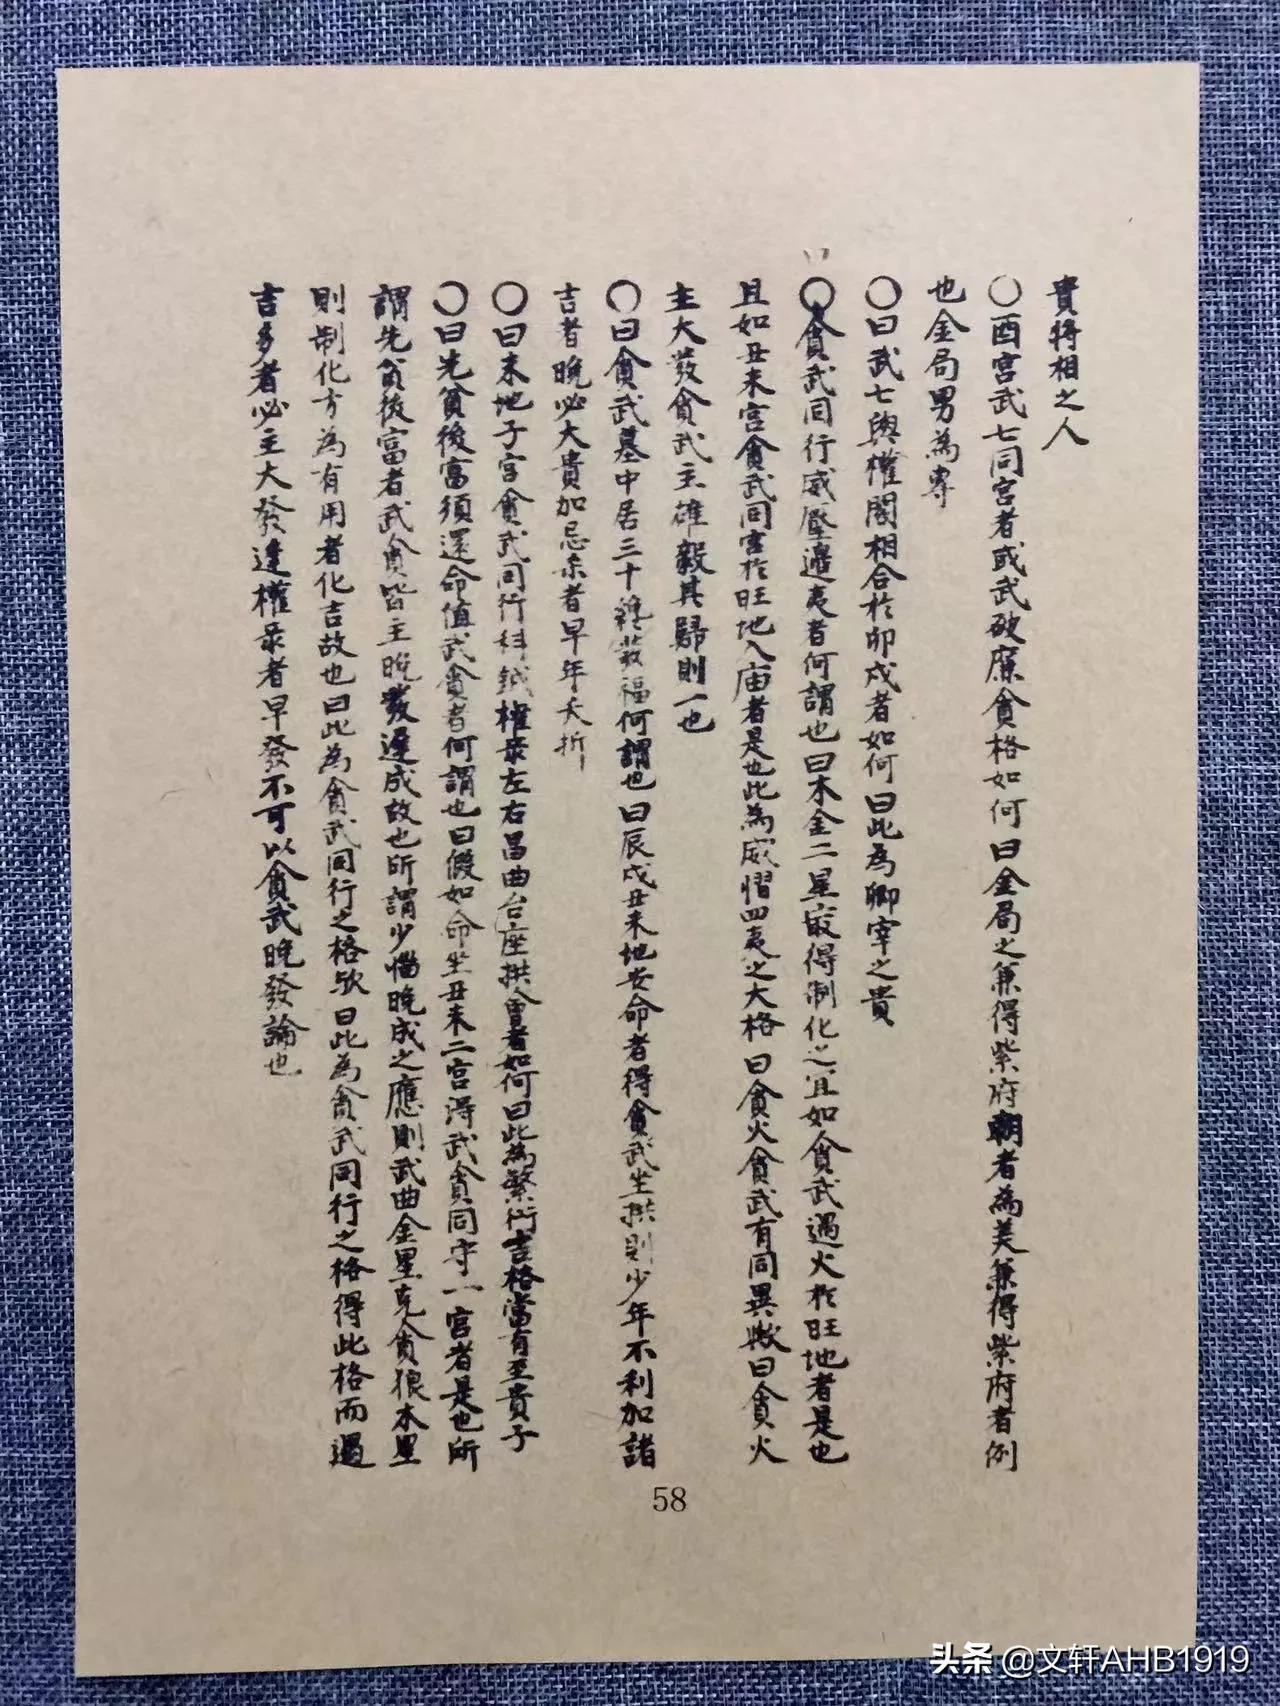 貴将相之人
○酉宮武七同宮者或武破廉貪格如何曰金局之兼得紫府朝者為美兼得紫府者例
也金局男為専
○曰武七與權閣相合於卯戍者如何曰此為卿宰之貴
○貪武同行威壓邊夷者何謂也曰木金二星最得制化之且如貪武遇火於旺地者是也
且如丑未宮貪武同宮於旺地入庙者是也此為威慴四夷之大格曰貪火貪武有同異歟曰貪火
主大發貪武主雄毅其歸則一也
○曰貪武墓中居三十發福何謂也曰辰戍丑未地安命者得貪武坐拱則少年不利加諸
吉者晚必大貴加忌杀者早年夭折
○曰未地子宮貪武同行科鉞權彔左右昌曲台座拱會者如何曰此為繁衍吉格當有至貴子
○曰先貧後富須還命值武貪者何謂也曰假如命坐丑未二宮得武貪同守一宮者是也所
謂先貧後富者武貪皆主晚發遲成故也所謂少惱晚成之應則武曲金星克貪狼木星
則制化方為有用者化吉故也曰此為貪武同行之格欤曰此為貪武同行之格得此格而遇
吉多者必主大發逢權彔者早發不可以貪武晚發論也
58
头条 @文轩AHB1919